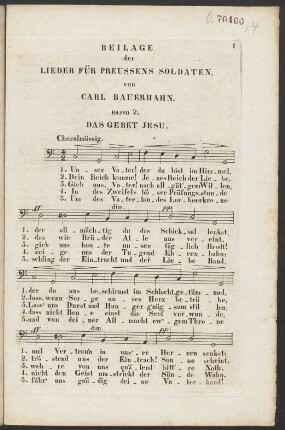 70400,4
1
BEILAGE
der
LIEDER FÜR PREUSSENS SOLDATEN,
von
CARL BAUERHAHN.
BASSO 2.
DAS GEBET JESU.
Choralmässig.
1. Un - ser Va - ter! der du bist im Him - mel,
2. Dein Reich komme! Je - nes Reich der Lie - be,
3. Gieb uns, Va - ter! nach all - güt' - gen Wil - len,
4. In des Zweifels bö - ser Prüfungs - stun - de
5. Um des Va - ter - lan - des Lor - beerkro - ne
dim.
1. der all - mäch - tig du das Schick - sal lenkst,
2. das wie Brü - der Al - le uns ver - eint,
3. gieb uns heu - te un - ser täg - lich Brodt!
4. zei - ge uns der Tu - gend Eh - ren - bahn;
5. schling der Ein - tracht und der Lie - be Band,
1. der du uns be - schirmst im Schlacht - ge - tüm - mel,
2. dass, wenn Sor - ge un - ser Herz be - trü - be,
3. Lass' uns Durst und Hun - ger gnüg - sam stil - len,
4. dass nicht Ben - e einst die Seel' ver - wun - de,
5. und von dei - ner All - macht ew' - gem Thro - ne
dim.
1. und Ver - trau'n in uns' - re Her - zen senkst;
2. trö - stend uns der Ein - tracht Son - ne scheint.
3. weh - re von uns quä - lend bitt' - re Noth.
4. nicht den Geist um - strickt der Sün - de Wahn.
5. führ' uns gnä - dig dei - ne Va - ter - hand!